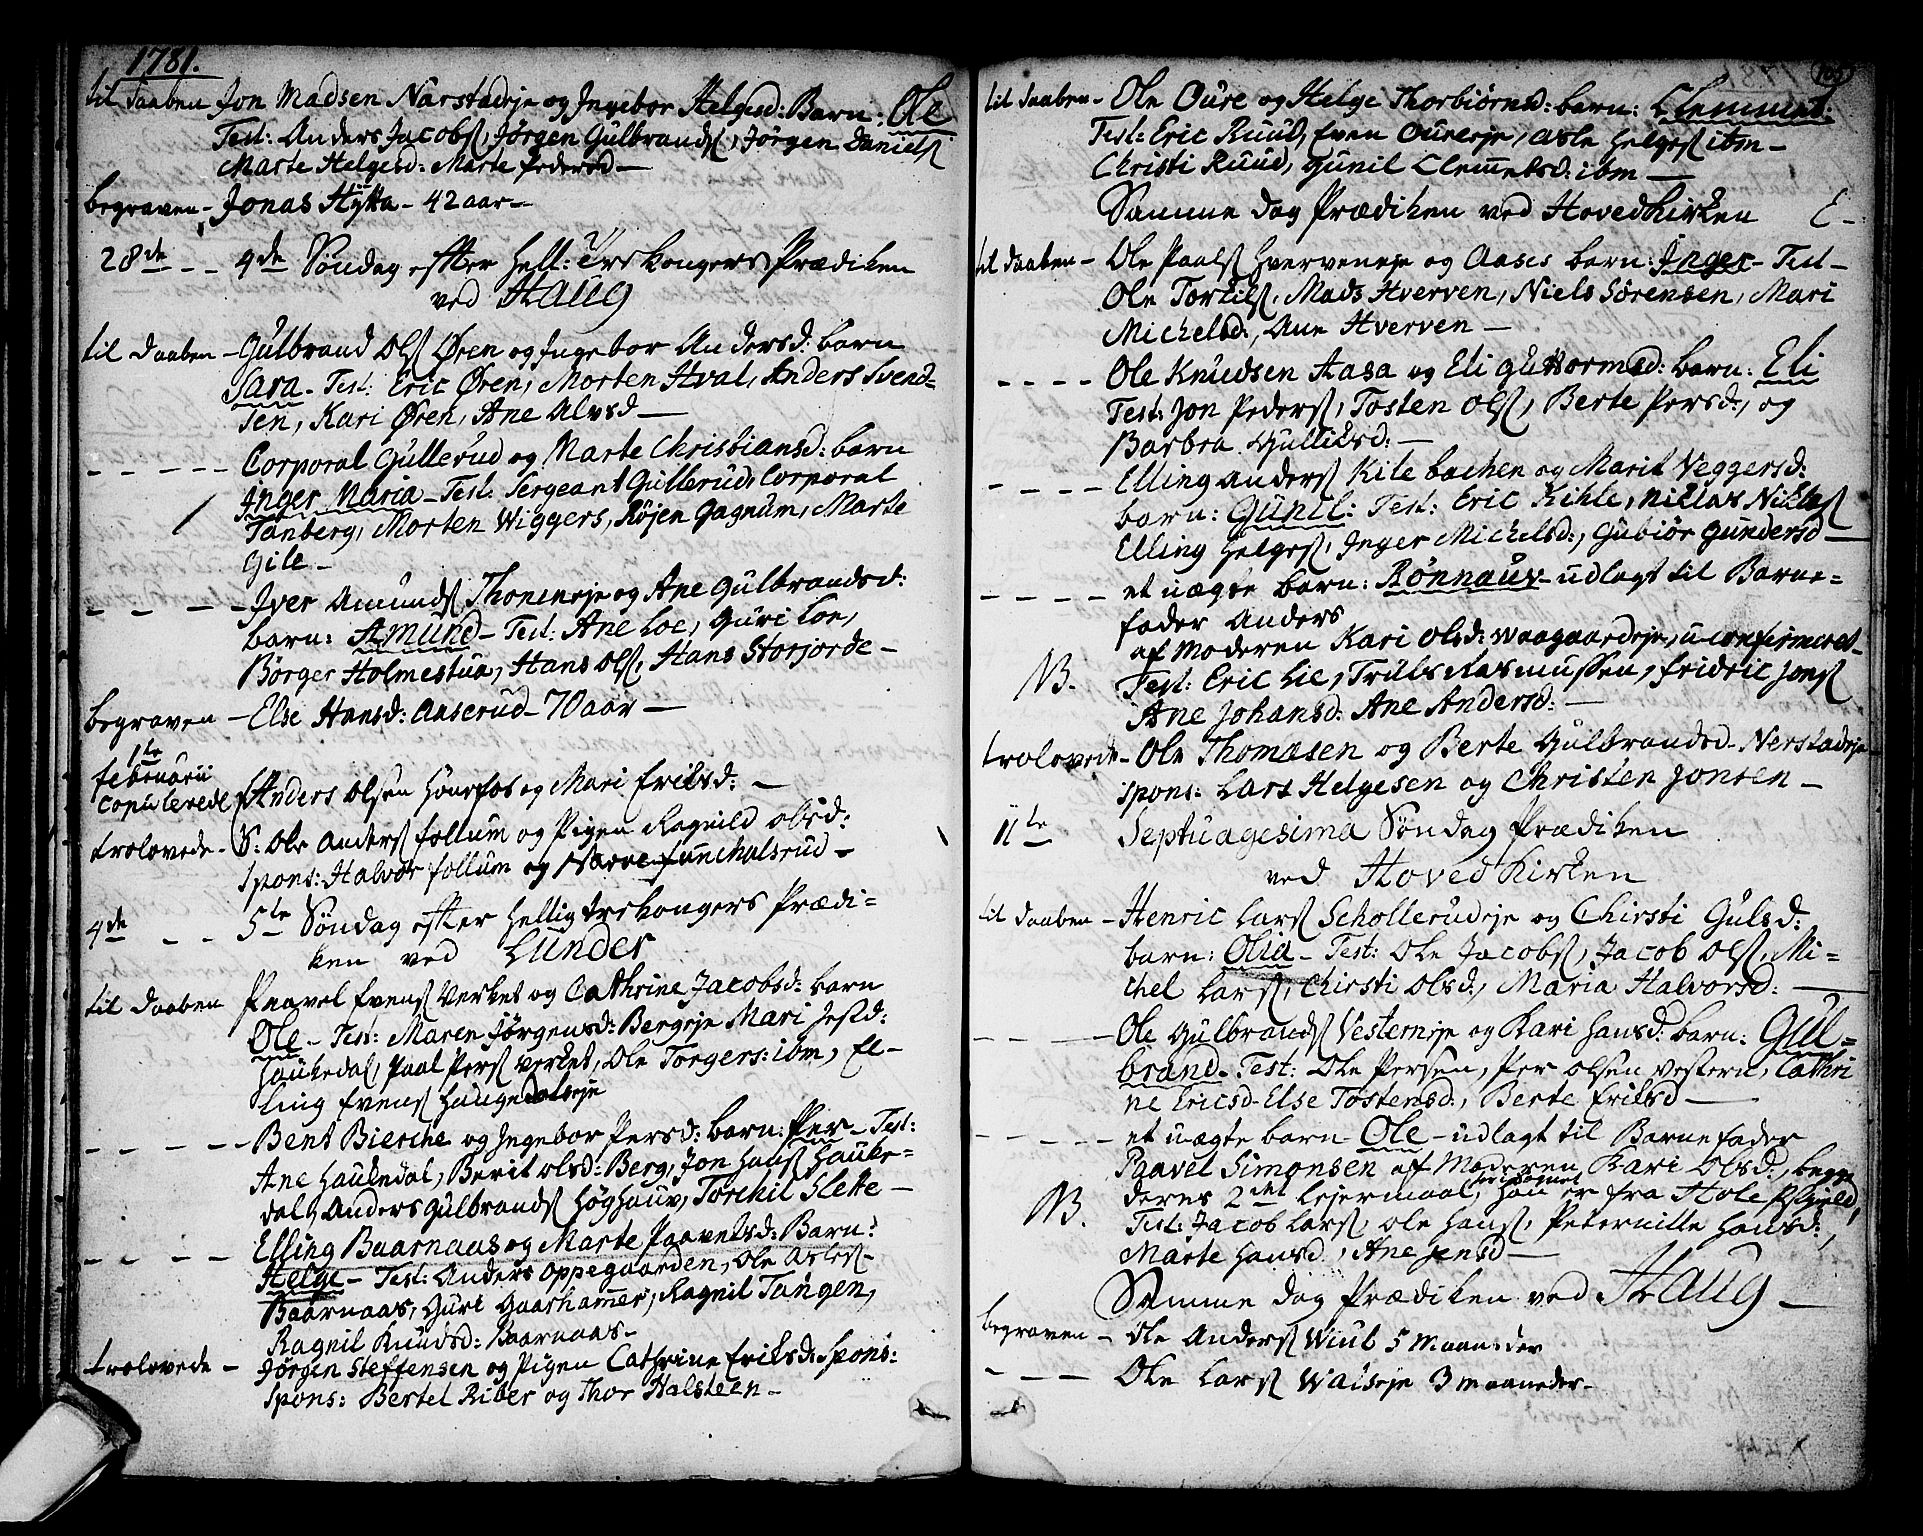 1781.
til daaben Jon Madsen Narstadeje og Ingebor Helgesd: Barn: Ole
Test: Anders Jacobs, Jørgen Gulbrands, Jørgen Daniels
Marte Helgesd: Marte Pedersd —
begraven - Jonas Hytta - 42 aar —
28de - - 4de Søndag efter Hell: Trekongers Prædiken
ved Haug
til daaben - Gulbrand Ols Øren og Ingebor Andersd: barn
Sara - Test: Eric Øren, Morten Hval, Anders Svend=
sen, Kari Øren, Ane Alvsd —
- - - - - Corporal Gullerud og Marte Christiansd: barn
Inger Maria - Test: Sergeant Gullerud, Corporal
Tanberg, Morten Wiggers, Røjen Gagnum, Marte
Gile -
- - - - Iver Amunds Thoneneje og Ane Gulbrandsd:
barn: Amund - Test: Ane Loe, Guri Loe,
Børger Holmestua, Hans Ols, Hans Storjorde -
begraven - Else Hansd: Aaserud - 70 aar —
1te
februarii
Copulerede Anders Olsen Hønefos og Mari Eriksd: —
trolovede - S: Ole Anders follum og Pigen Ragnild Olsd:
Spons: Halvor follum og Narve Funchulsrud -
4de - - 5te Søndag efter Hellig trekongers Prædi=
ken ved Lunder
til daaben Paavel Evens Verket og Cathrine Jacobsd: barn
Ole - Test: Maren Jørgensd: Bergeje Mari Jesd:
Haukedal, Paal Pers Verket, Ole Torgers: ibm, El-
ling Evens Haugedalseje
- - - - Bent Bierche og Ingebor Persd: barn: Per - Test:
Ane Haukedal, Berit Olsd: Berg, Jon Hans Hauke=
dal, Anders Gulbrands Høghauv, Torchil Slette -
- - - - Elling Baarnaas og Marte Paavelsd: Barn:
Helge - Test: Anders Oppegaarden, Ole Asles
Baarnaas, Guri Gaarhamer, Ragnil Tangen,
Ragnil Knudsd: Baarnaas -
trolovede - Jørgen Steffensen og Pigen Cathrine Eriksd: Spons:
Spons: Bertel Riber og Thor Halsteen -
til daaben - Ole Oure og Helge Thorbiørnsd: barn: Clemmet:
Test: Eric Ruud, Even Oureeje, Asle Helges ibm -
Christi Ruud, Gunil Clemetsd: ibm —
Samme dag Prædiken ved Hovedkirken
til daaben - Ole Paals Hverveneje og Aases barn: Inger - Test -
Ole Torkils, Mads Hverven, Niels Sørensen, Mari
Michelsd:, Ane Hverven —
- - - - Ole Knudsen Aasa og Eli Guttormsd: barn: Eli
Test: Jon Peders, Tosten Ols, Berte Persd:, og
Barbra Gulliksd: —
- - - - Elling Anders Kilebachen og Marit Veggersd:
barn: Gunil: Test: Eric Kihle, Niclas Nikles
Elling Helges, Inger Michelsd:, Gubiør Gundersd —
- - - - - et uægte barn: Rønnauv - udlagt til Barne=
fader Anders
af Moderen Kari Olsd: Waagaardeje, uconfirmeret -
NB. Test: Eric Lie, Truls Rasmussen, Fridric Jons
Ane Johansd: Ane Andersd: —
trolovede - Ole Thomasen og Berte Gulbrandsd - Nerstadeje
Spons: Lars Helgesen og Christen Jonsen -
11te Septuagesima Søndag Prædiken
ved Hoved Kirken
til daaben - Henric Lars Schollerudeje og Chirsti Gulsd:
barn: Olia - Test: Ole Jacobs, Jacob Ols, Mi=
chel Lars, Chirsti Olsd:, Maria Halvorsd: —
- - - Ole Gulbrands Vesterneje og Kari Hansd: barn: Gul=
brand - Test: Ole Persen, Per Olsen Vestern, Cathri
ne Ericsd - Else Tostensd:, Berte Eriksd —
- - - - et uægte barn - Ole - udlagt til Barnefader
Paavel Simonsen af Moderen Kari Olsd:, begge
NB. deres 2det Lejermaal, han er fra Hole Pgield,
Test: Jacob Lars, Ole Hans, Peternille Hansd:,
Marte Hansd:, Ane Jensd —
Samme dag Prædiken ved Haug —
begraven - Ole Anders Wiul 5 maaneder
- - - Ole Lars Walseje 3 maaneder -